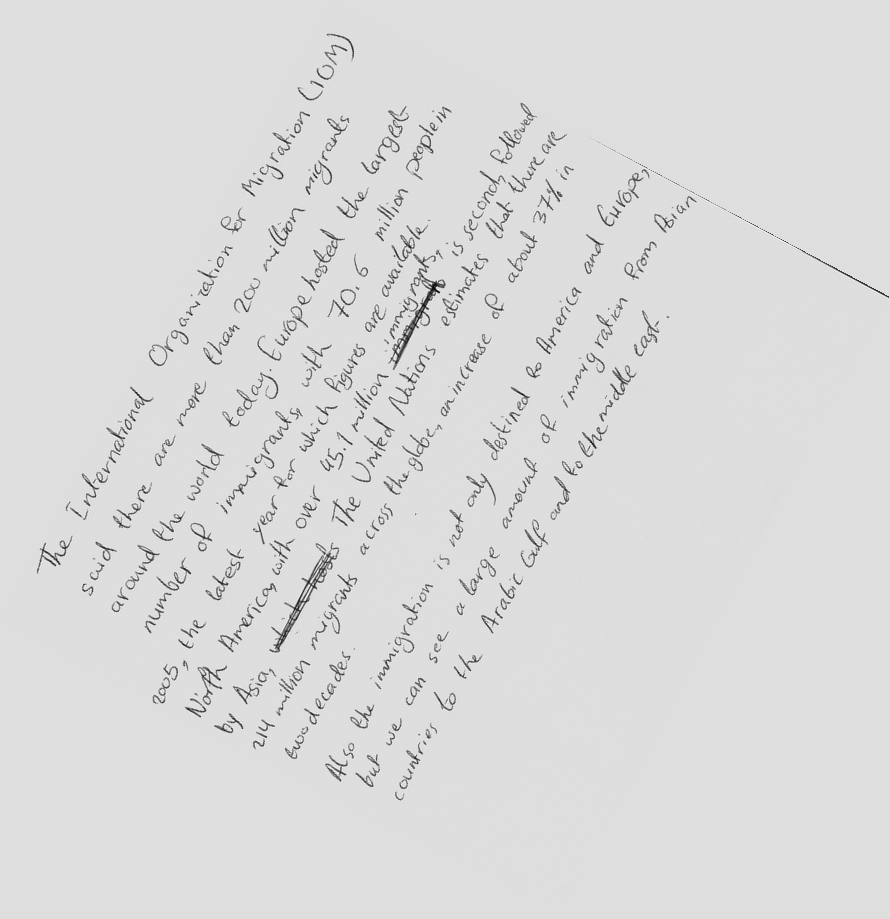 The International Organization for Migration (IOM)
said there are more than 200 million migrants
around the world today. Europe hosted the largest
number of immigrants, with 70.6 million people in
2005, the latest year for which figures are available.
North America, with over 45.1 million immigrants, is second, followed
by Asia, The United Nations estimates that there are
214 million migrants across the globe, an increase of about 37% in
two decades.
Also the immigration is not only destined to America and Europe,
but we can see a large amount of immigration from Asian
countries to the Arabic Gulf and to the middle east.